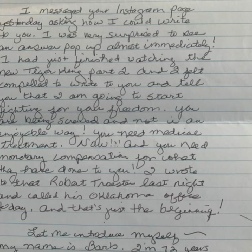 I messaged your Instagram page
yesterday asking how I could write
to you. I was very surprised to see
an answer pop up almost immediately!
I had just finished watching the
new Tiger King part 2 and I felt
compelled to write to you and tell
you that I am going to start
fighting for your freedom. You
are being screwed and not in an
enjoyable way! You need medical
treatment. Now! And you need
monetary compensation for what
they have done to you. I wrote
to that Robat last night
and called his Oklahoma office
today. And that's just the beginning!
Let me introduce myself ~
my name is Barb. I'm 72 years